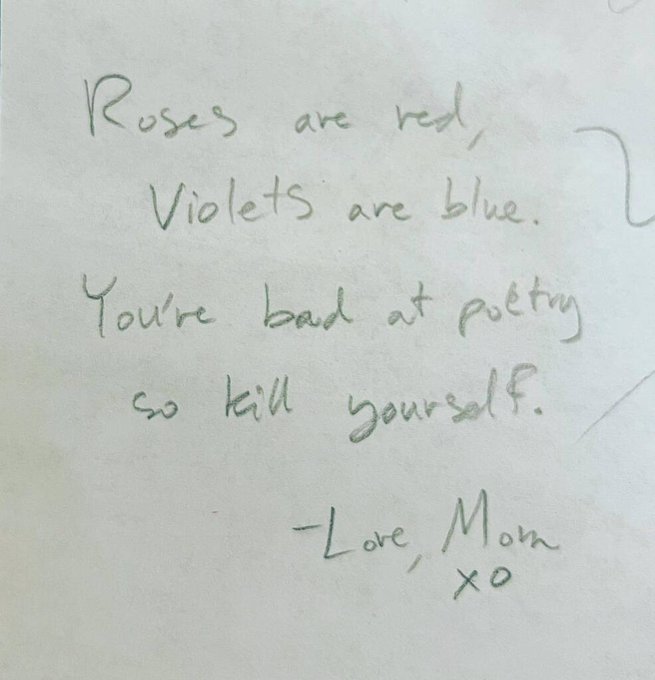 Roses are red,
Violets are blue.
You're bad at poetry
so kill yourself.
-Love, Mom
xo